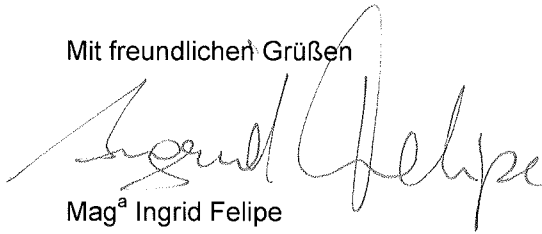 Mit freundlichen Grüßen
Ingrid Felipe
Magª Ingrid Felipe